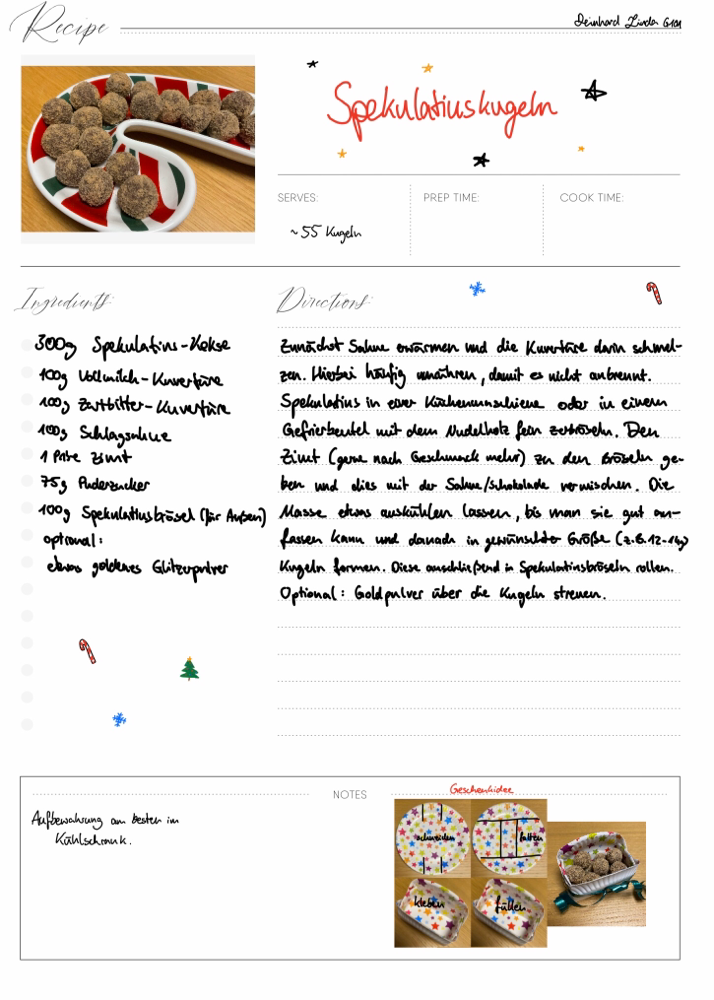 Recipe
Deinhard Linda G1A1
Spekulatiuskugeln
SERVES:
PREP TIME:
COOK TIME:
~55 Kugeln
Ingredients:
Directions:
300g Spekulatius-Kekse
100g Vollmilch-Kuvertüre
100g Zartbitter-Kuvertüre
100g Schlagsahne
1 Prise Zimt
75g Puderzucker
100g Spekulatiusbrösel (für Außen)
optional:
etwas goldenes Glitzerpulver
Zunächst Sahne erwärmen und die Kuvertüre darin schmel-
zen. Hierbei häufig umrühren, damit es nicht anbrennt.
Spekulatius in einer Küchenmaschiene oder in einem
Gefrierbeutel mit dem Nudelholz fein zerbröseln. Den
Zimt (gerne nach Geschmack mehr) zu den Bröseln ge-
ben und dies mit der Sahne/Schokolade vermischen. Die
Masse etwas auskühlen lassen, bis man sie gut an-
fassen kann und danach in gewünschter Größe (z.B. 12-14g)
Kugeln formen. Diese anschließend in Spekulatiusbröseln rollen.
Optional: Goldpulver über die Kugeln streuen.
NOTES
Aufbewahrung am besten im
Kühlschrank.
Geschenkidee
schneiden
falten
kleben
füllen